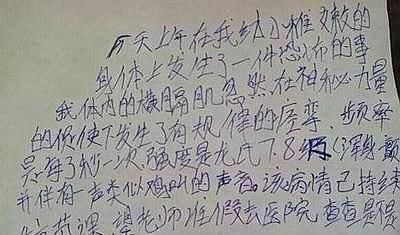 今天上午在我幼小稚嫩的
身体上发生了一件恐怖的事
我体内的横膈肌忽然在神秘力量
的促使下发生了有规律的痉挛，频率
是每7秒一次，强度是尤氏7.8级(浑身颤
并伴有一声类似鸡叫的声音。该病情已持续
节课，望老师准假去医院查查是